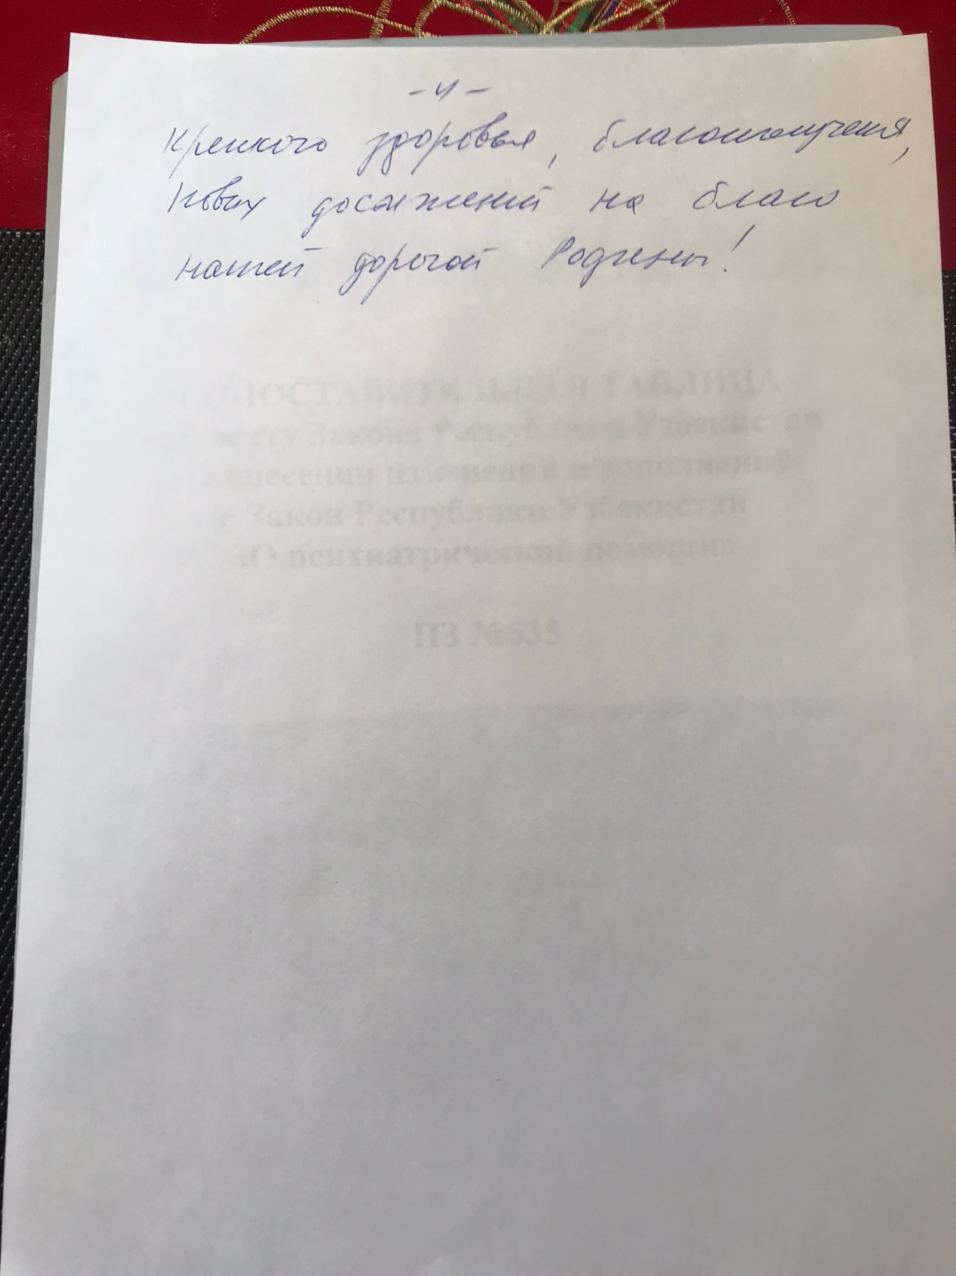 -4-
Крепкого здоровья, благополучия,
новых достижений на благо
нашей дорогой Родины!
СОПОСТАВИТЕЛЬНАЯ ТАБЛИЦА
Закона Республики Узбекистан
внесении изменений и дополнений
в Закон Республики Узбекистан
«О психиатрической помощи»
ПЗ №635